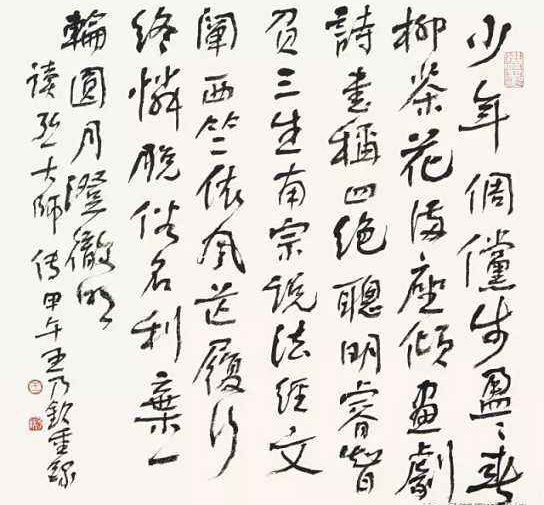 少年倜儻步盈〻春
柳茶花滿座傾畫劇
詩書稱四絕聰明睿智
負三生南宗說法經文
闡西竺依風芒履行
終憐脫俗名利棄一
輪圓月澄徹明
讀弘一大師傳甲午王乃欽重錄